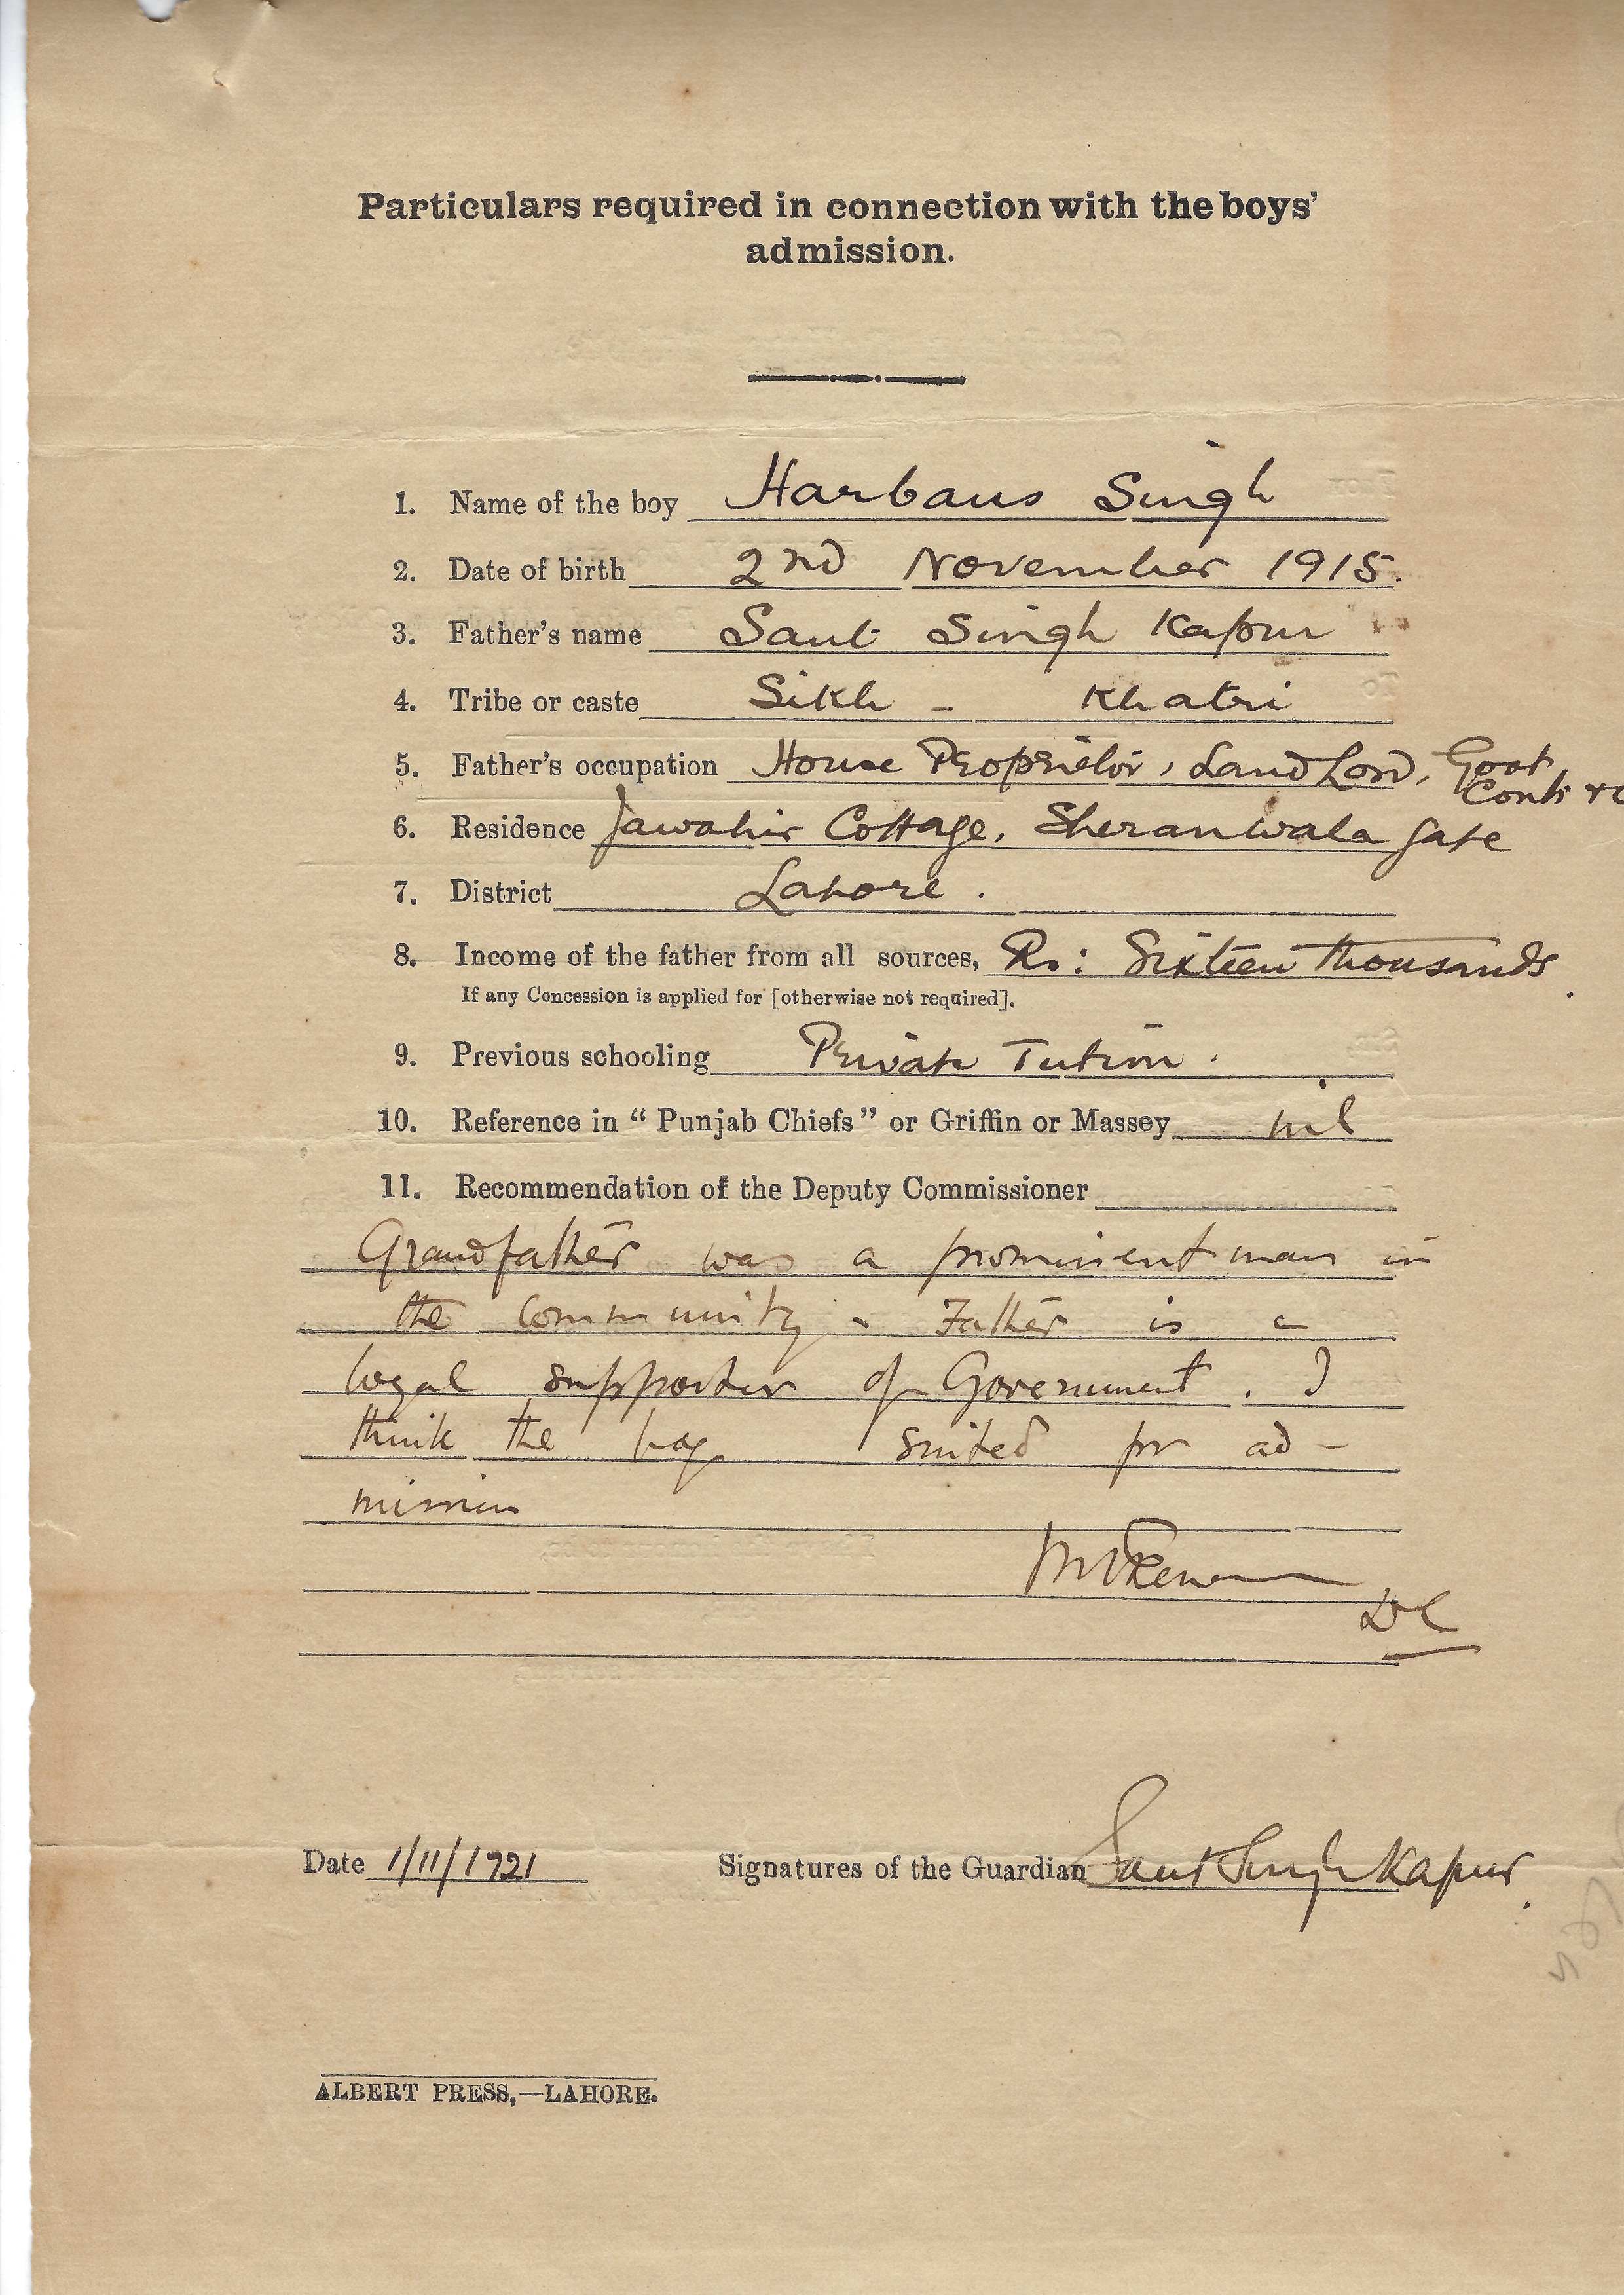 Particulars required in connection with the boys'
admission.
1. Name of the boy Harbans Singh
2. Date of birth 2nd November 1915.
3. Father's name Sant Singh Kapur
4. Tribe or caste Sikh - Khatri
5. Father's occupation House Proprietor, Land Lord, Govt
Contr
6. Residence Jawahir Cottage, Sheranwala Gate
7. District Lahore.
8. Income of the father from all sources, Rs: Sixteen thousands.
If any Concession is applied for [otherwise not required].
9. Previous schooling Private Tution.
10. Reference in "Punjab Chiefs" or Griffin or Massey nil
11. Recommendation of the Deputy Commissioner
Grandfather was a prominent man in
the community. Father is a
loyal supporter of Government. I
think the boy suited for ad-
mission
DC
Date 1/11/1921 Signatures of the Guardian Sant Singh Kapur.
ALBERT PRESS,—LAHORE.